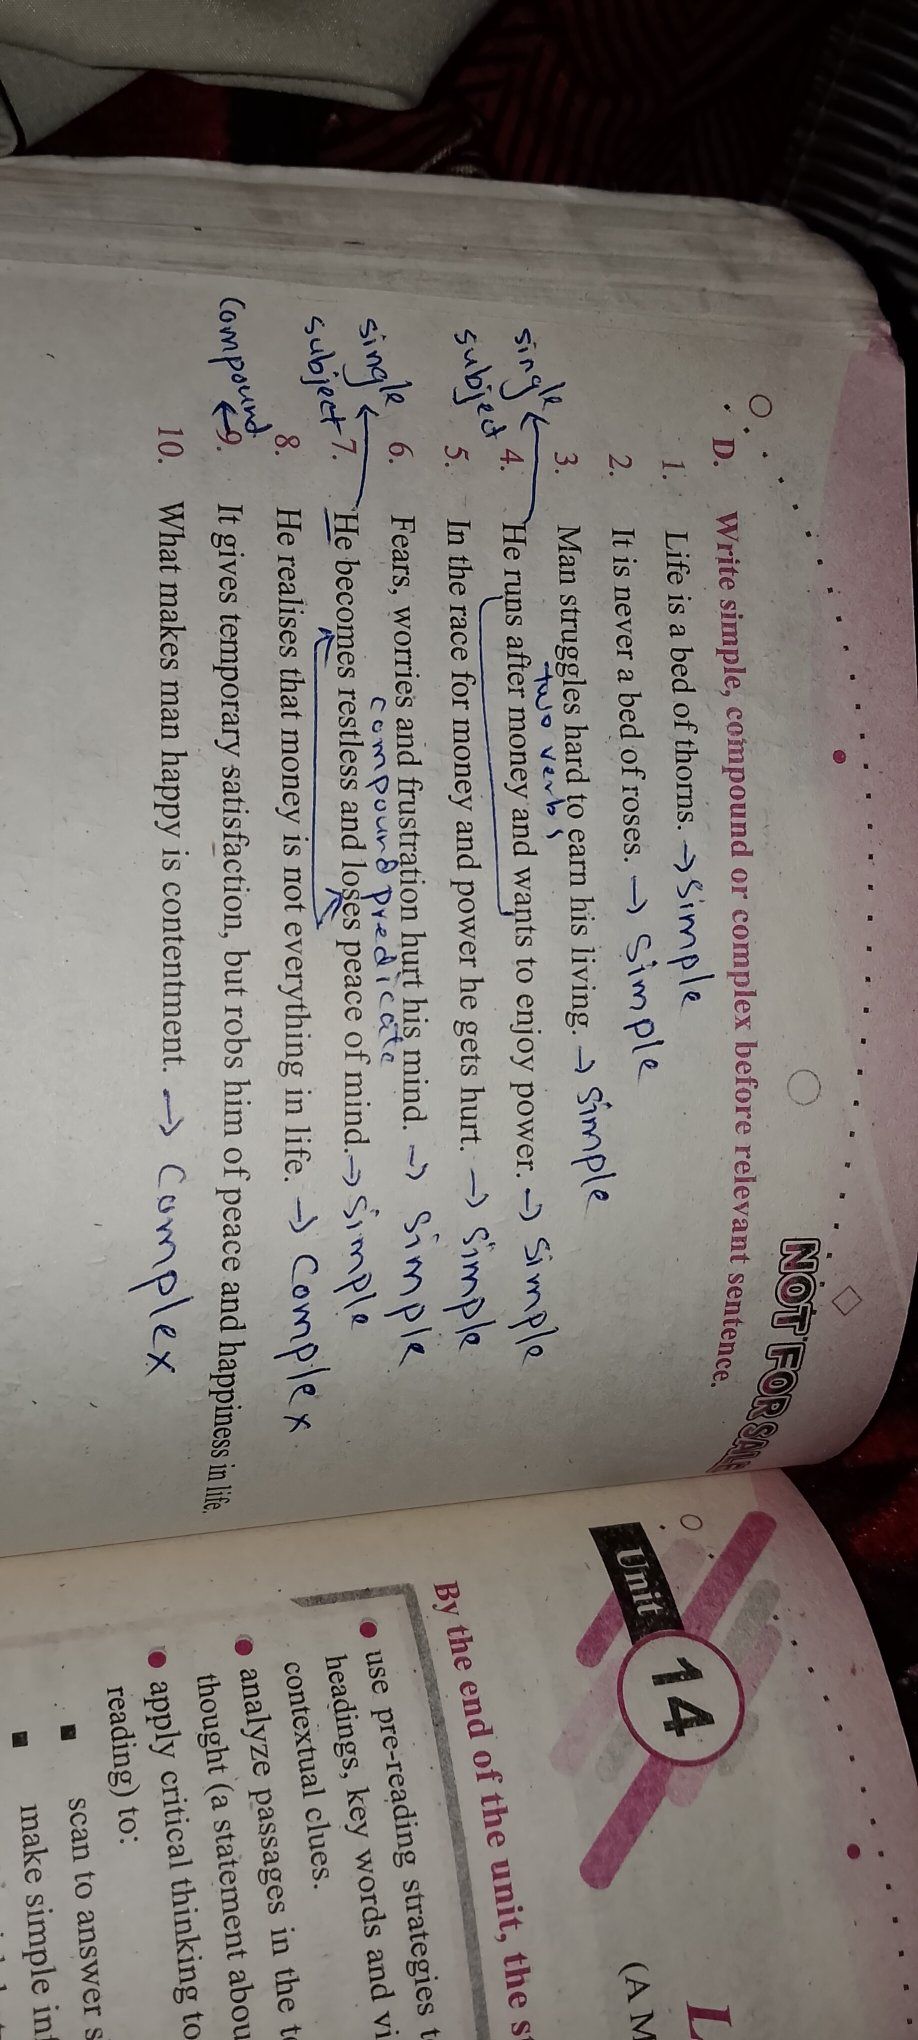 NOT FOR SALE
D. Write simple, compound or complex before relevant sentence.
1. Life is a bed of thorns. → simple
2. It is never a bed of roses. → simple
3. Man struggles hard to earn his living. → simple
two verbs
single subject
4. He runs after money and wants to enjoy power. → simple
5. In the race for money and power he gets hurt. → simple
6. Fears, worries and frustration hurt his mind. → simple
compound predicate
single subject
7. He becomes restless and loses peace of mind. → simple
8. He realises that money is not everything in life. → Complex
compound
9. It gives temporary satisfaction, but robs him of peace and happiness in life.
10. What makes man happy is contentment. → Complex
Unit 14
L
(A M
By the end of the unit, the s
• use pre-reading strategies t
headings, key words and vi
contextual clues.
• analyze passages in the t
thought (a statement abou
• apply critical thinking to
reading) to:
▪ scan to answer s
▪ make simple in